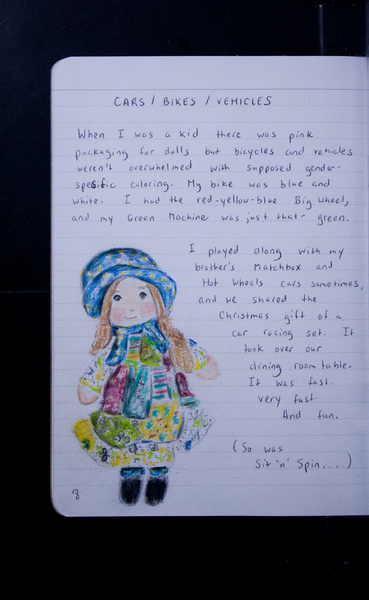 CARS / BIKES / VEHICLES
When I was a kid there was pink
packaging for dolls but bicycles and vehicles
weren't overwhelmed with supposed gender-
spesific coloring. My bike was blue and
white. I had the red-yellow-blue Big Wheel,
and my Green Machine was just that - green.
I played along with my
brother's Matchbox and
Hot Wheels cars sometimes,
and we shared the
Christmas gift of a
car racing set. It
took over our
dining room table.
It was fast.
very fast.
And fun.
(So was
Sit 'n' Spin.....)
8